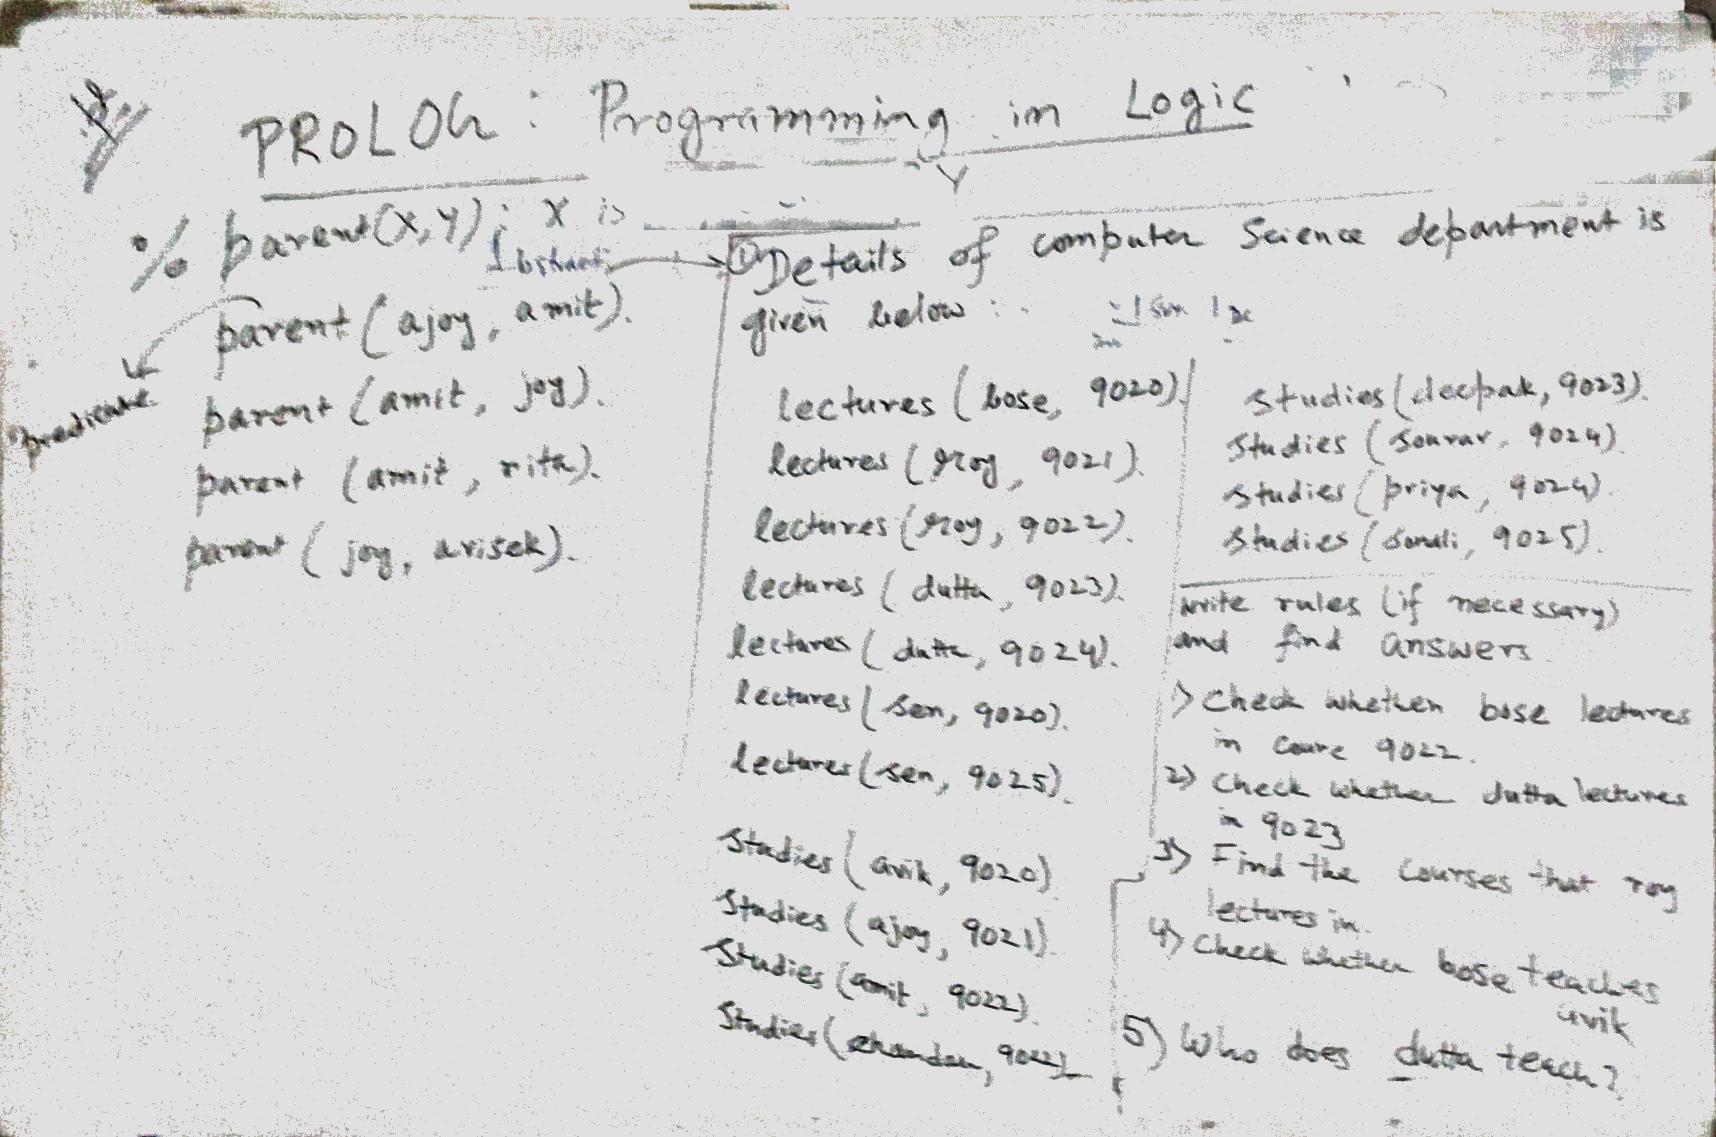 PROLOG : Programming in Logic
% parent(X,Y) ; X is
Y
parent (ajoy, amit).
predicate
parent (amit, joy).
parent (amit, rita).
parent (joy, avisek).
1) Details of computer Science department is
given below :
lectures (bose, 9020).
lectures (roy, 9021).
lectures (roy, 9022).
lectures (dutta, 9023).
lectures (dutta, 9024).
lectures (sen, 9020).
lectures (sen, 9025).
studies (avik, 9020).
studies (ajoy, 9021).
studies (amit, 9022).
studies (chandan, 9022).
studies (deepak, 9023).
studies (sourav, 9024).
studies (priya, 9024).
studies (sonali, 9025).
write rules (if necessary)
and find answers
1) Check whether bose lectures
in course 9022.
2) Check whether dutta lectures
in 9023
3) Find the courses that roy
lectures in.
4) Check whether bose teaches
avik
5) Who does dutta teach?